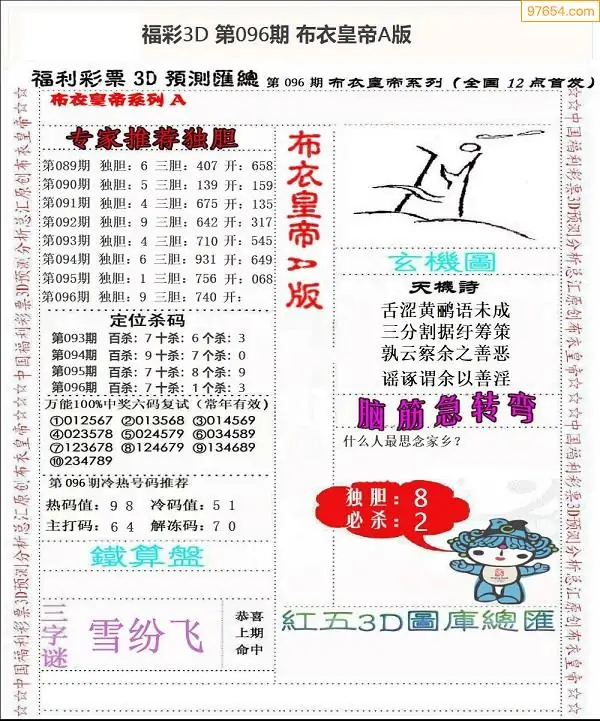 97654.com
福彩3D 第096期 布衣皇帝A版
福利彩票 3D 預測匯總 第 096 期 布衣皇帝系列 (全国 12 点首发)
布衣皇帝系列 A
专家推荐独胆
第089期 独胆: 6 三胆: 407 开: 658
第090期 独胆: 5 三胆: 139 开: 159
第091期 独胆: 4 三胆: 675 开: 135
第092期 独胆: 9 三胆: 642 开: 317
第093期 独胆: 4 三胆: 710 开: 545
第094期 独胆: 6 三胆: 931 开: 649
第095期 独胆: 1 三胆: 756 开: 068
第096期 独胆: 9 三胆: 740 开:
定位杀码
第093期 百杀: 7 十杀: 6 个杀: 3
第094期 百杀: 9 十杀: 7 个杀: 0
第095期 百杀: 7 十杀: 8 个杀: 9
第096期 百杀: 7 十杀: 1 个杀: 3
万能100%中奖六码复试 (常年有效)
①012567 ②013568 ③014569
④023578 ⑤024579 ⑥034589
⑦123678 ⑧124679 ⑨134689
⑩234789
第 096期冷热号码推荐
热码值: 9 8 冷码值: 5 1
主打码: 6 4 解冻码: 7 0
鐵算盤
三字谜
雪纷飞
恭喜
上期
命中
布衣皇帝A版
玄機圖
天機詩
舌涩黄鹂语未成
三分割据纡筹策
孰云察余之善恶
谣诼谓余以善淫
脑筋急转弯
什么人最思念家乡?
独胆: 8
必杀: 2
紅五3D圖庫總匯
☆☆中国福利彩票3D预测分析总汇原创布衣皇帝☆☆☆中国福利彩票3D预测分析总汇原创布衣皇帝☆☆
☆☆中国福利彩票3D预测分析总汇原创布衣皇帝☆☆☆中国福利彩票3D预测分析总汇原创布衣皇帝☆☆